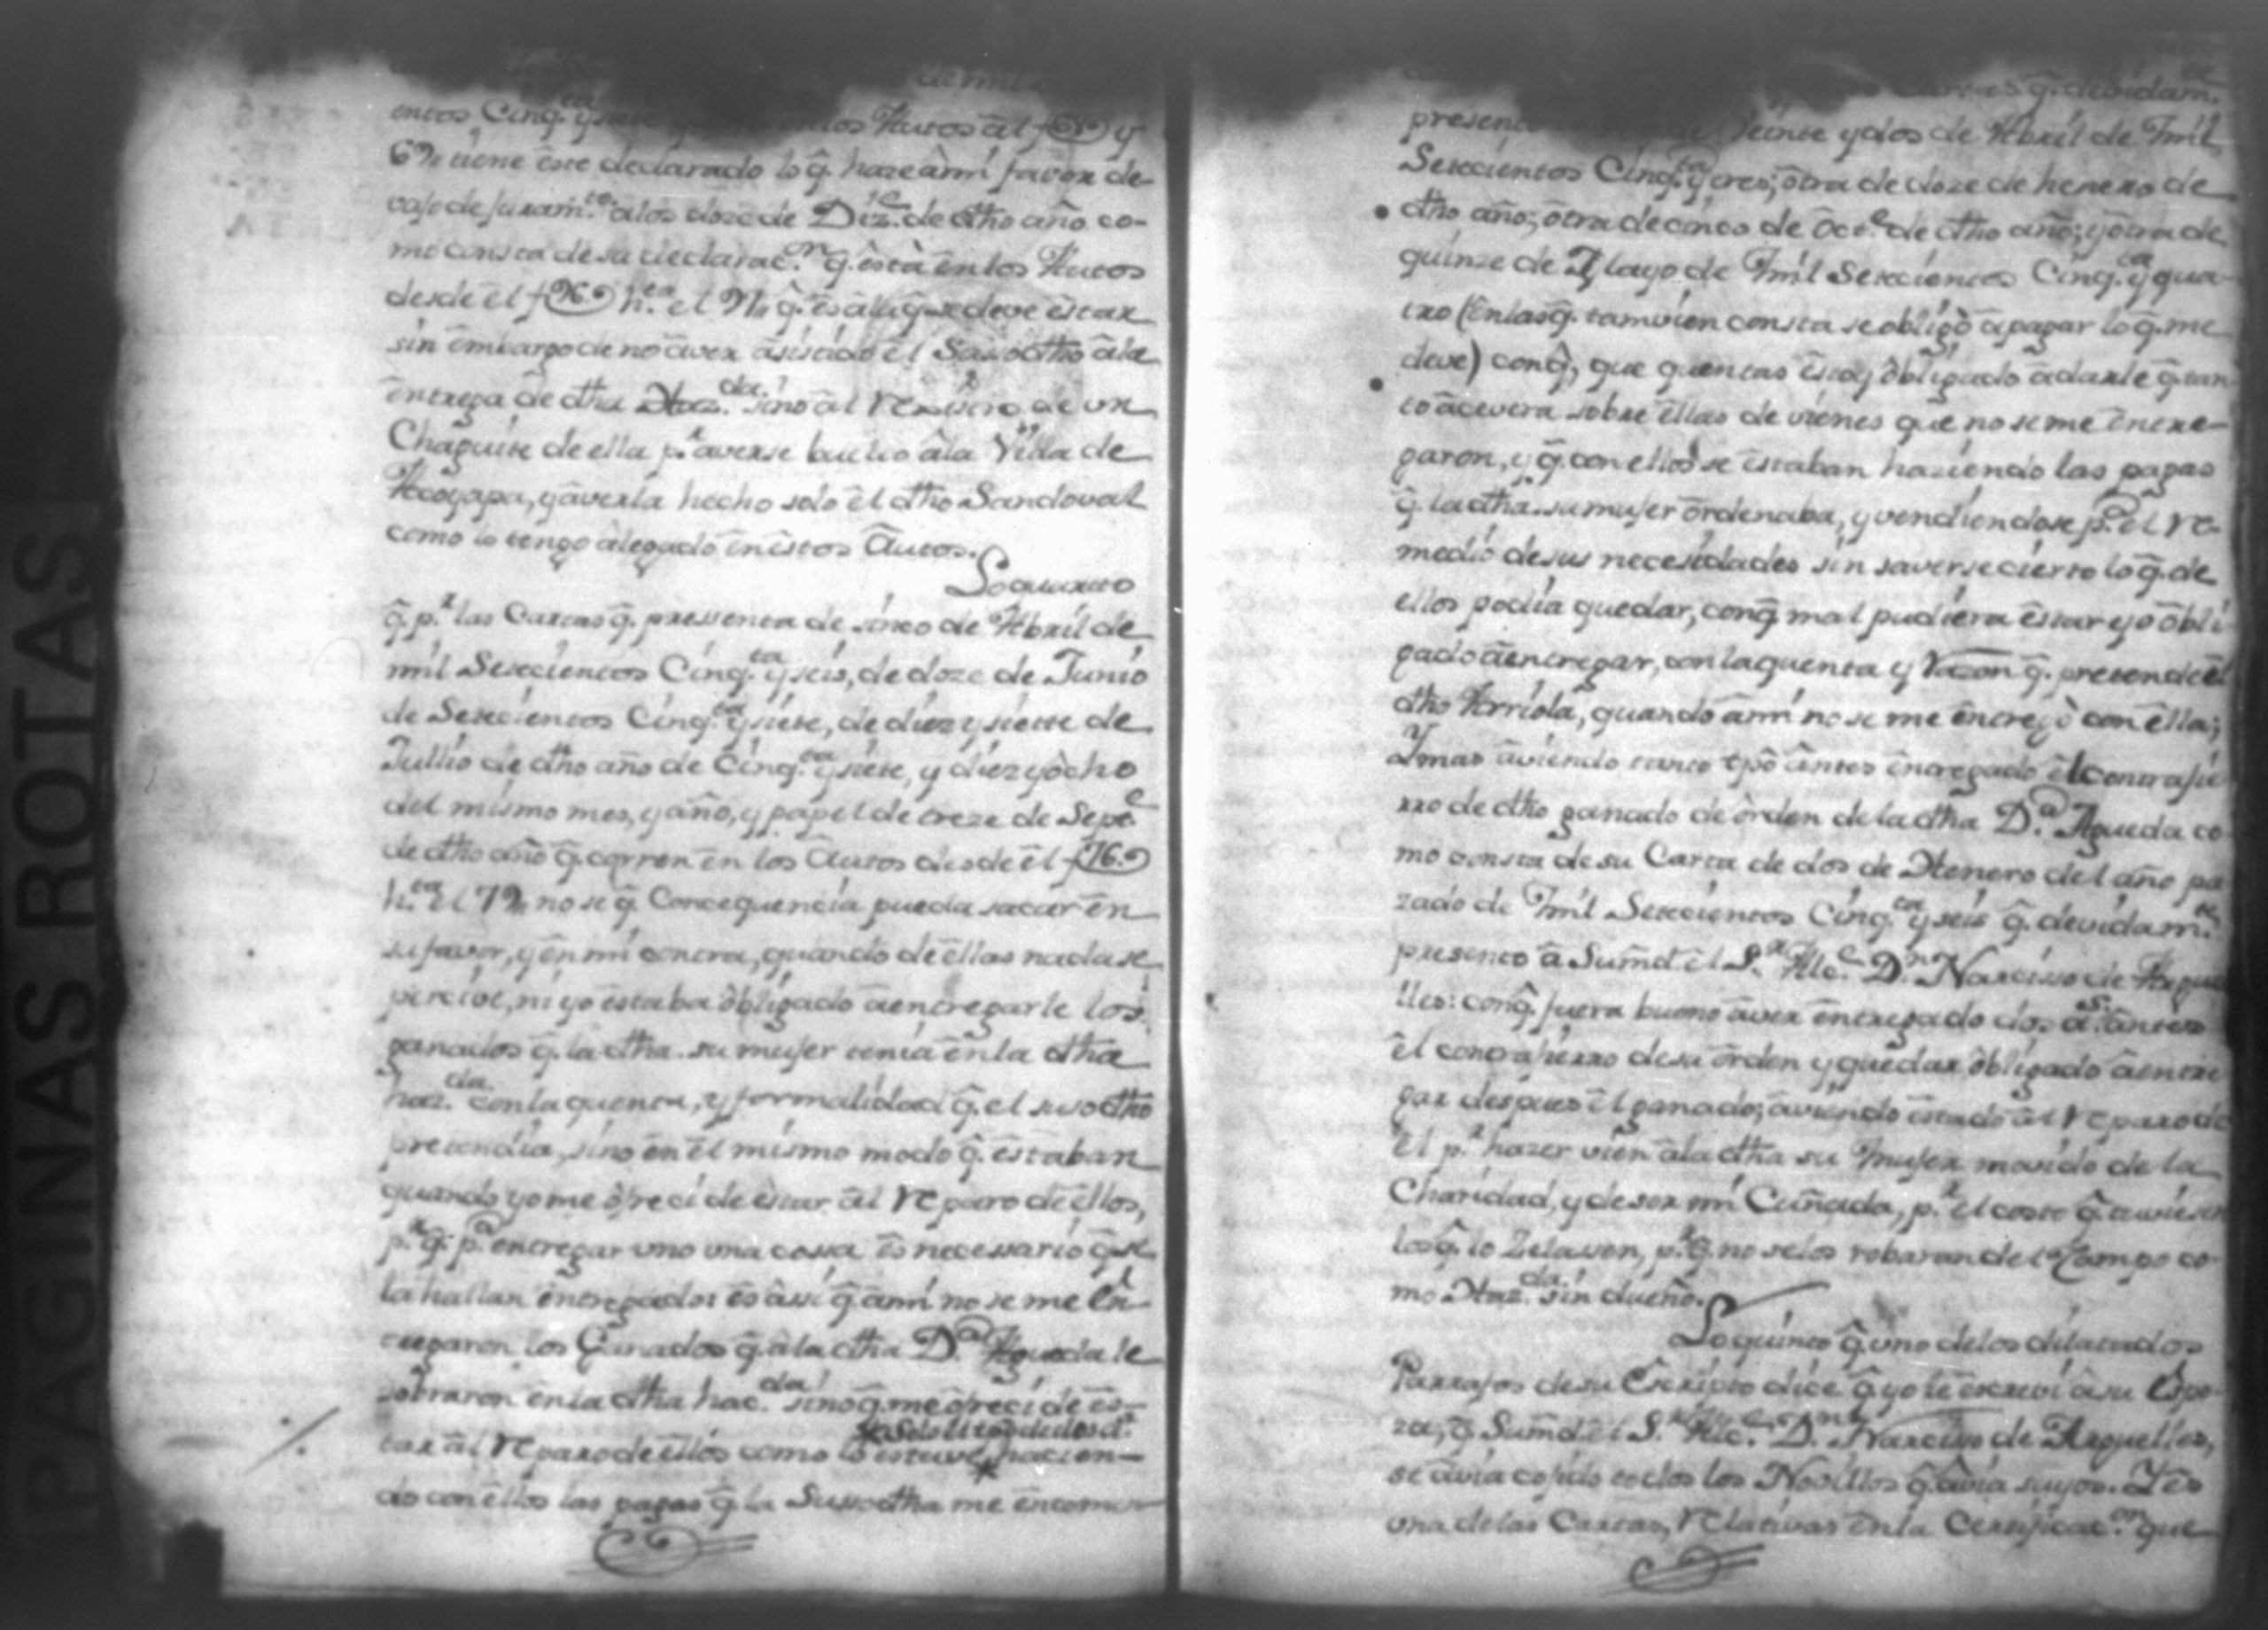 PAGINAS ROTAS
de mil
entos Cinq.ta y siete los Autos âl f 68 y
69 tiene êste declarado lo q̂. haze âmi favor de-
vajo de juram.to âlos doze de Diz.e de dho año co-
mo consta de su declarac.on q̂. êstâ ênlos Autos
desde êl f 76 h.ta el q̂. ês âlo q̂ se deve êstar
sin êmbargo de no âver âsistido êl Susodho âla
êntrega de dha Haz.da sino âl Rexistro de un
Chaguite de ella p.r averse buelto âla Villa de
Acoyapa, y âverla hecho solo êl dho Sandoval
como lo tengo âlegado ên êstos Autos.
Lo quarto
q̂. p.r las Cartas q̂. pressenta de sinco de Abril de
mil Setecientos Cinq.ta y seis, de doze de Junio
de Setecientos Cinq.ta y siete, de diez y siette de
Jullio de dho año de Cinq.ta y siete, y diez y ôcho
del mismo mes, y año, y papel de treze de Sep.e
de dho año q̂. corren ên los Autos desde êl f 76
h.ta êl 79 no se q̂. Consequencia pueda sacar ên
su favor, y ên mi contra, quando de êllas nada se
percive, ni yo êstaba ôbligado â entregarle los
ganados q̂. la dha su mujer tenia ên la dha
haz.da con la quenta, y formalidad q̂. el susodho
pretendia, sino ên êl mismo modo q̂. êstaban
quando yo me ôfreci de êstar âl Reparo de êllos,
p.r q̂. p.a entregar uno una cossa ês necessario q̂ se
la hallan êntregado: ês âssi q̂ âmi no se me en
tregaron los Ganados q̂. âla dha D.a Agueda le
sobraron ên la dha hac.da sino q̂ me ôfreci de ês-
tar âl Reparo de êllos como lo êstuve, hacien-
do con êllos las pagas q̂ la Susodha me êncomen
q̂. devidam.te
present veinte y dos de Abril de mil
Setecientos Cinq.ta y tres; ôtra de doze de henero de
dho año; ôtra de cinco de Oct.e de dho año; y ôtra de
quinze de Mayo de mil Setecientos Cinq.ta y qua-
tro (ên las q̂. tamvien consta se ôbligô â pagar lo q̂. me
deve) conq̂, que quentas êstoy ôbligado â darle q̂. tan
to âcevera sobre êllas de vienes que no se me êntre-
garon, y q̂. con ellos se êstaban haziendo las pagas
q̂. la dha su mujer ôrdenaba, y vendiendose p.a êl Re-
medio de sus necesidades sin saverse cierto lo q̂. de
ellos podia quedar, conq̂ mal pudiera êstar yo ôbli-
gado â entregar, con la quenta y Razon q̂. pretende êl
dho Arriola, quando âmi no se me êntregô con êlla;
Y mas âviendo tanto tpô ântes êntregado êl contrafie
rro de dho ganado de ôrden de la dha D.a Agueda co-
mo consta de su Carta de dos de Henero del año pa-
zado de mil Setecientos Cinq.ta y seis q̂. devidam.te
presento â Sumd êl S.r Alc.e D.n Narciso de Argue
lles: conq̂. fuera bueno âver êntregado dos a.s ântes
êl contrafierro de su ôrden y quedar ôbligado â entre
gar despues êl ganado; âviendo êstado âl Reparo de
êl p.r hazer vien âla dha su Mujer movido de la
Charidad, y de ser mi Cuñada, p.r el costo q̂. tuviesen
los q̂. lo Zelavan, p.r q̂. no selos robaran del Campo co-
mo Haz.da sin dueño.
Lo quinto q̂. uno de los dilatados
Parrafos de su Escripto dice q̂ yo le êscrevi â su Espo-
za, q̂ Sumd êl S.r Alc.e D.n Narciso de Arguelles,
se âvia cojido todos los Novillos q̂. âvia suyos. Y ês
una de las Cartas, Relativas ên la Certificac.on que